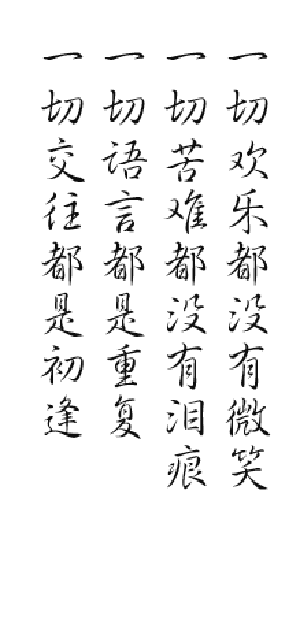 一切欢乐都没有微笑
一切苦难都没有泪痕
一切语言都是重复
一切交往都是初逢